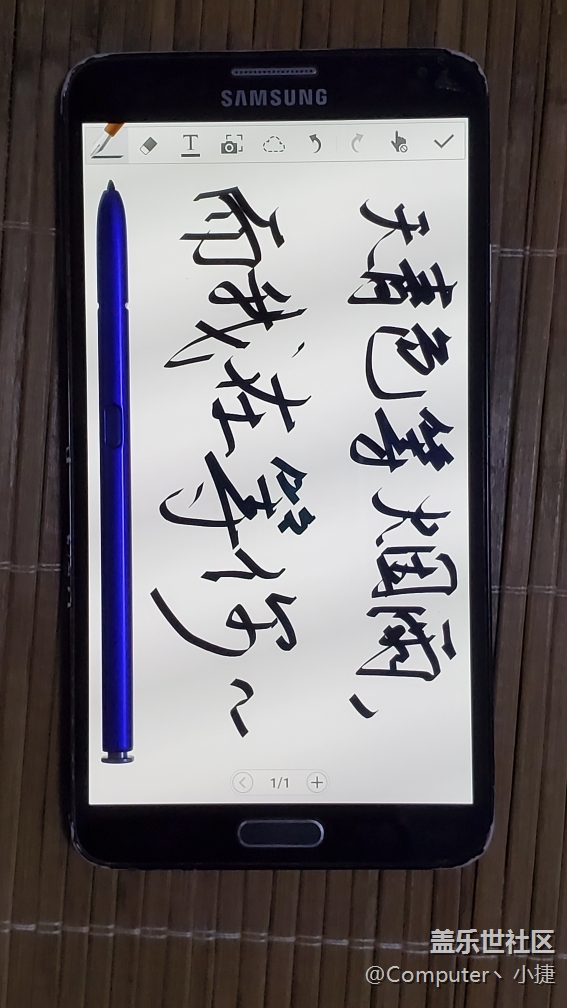 SAMSUNG
T
天青色等烟雨、
而我在等你~
1/1
盖乐世社区
@Computer丶小捷